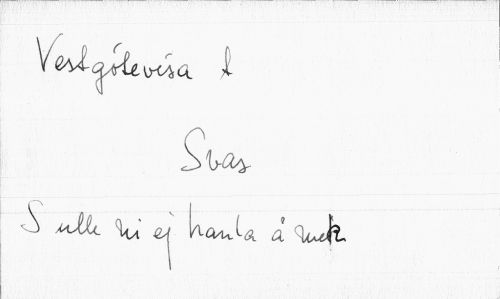 Vestgötevisa t
Svas
Sulle ni ej hanla å mek